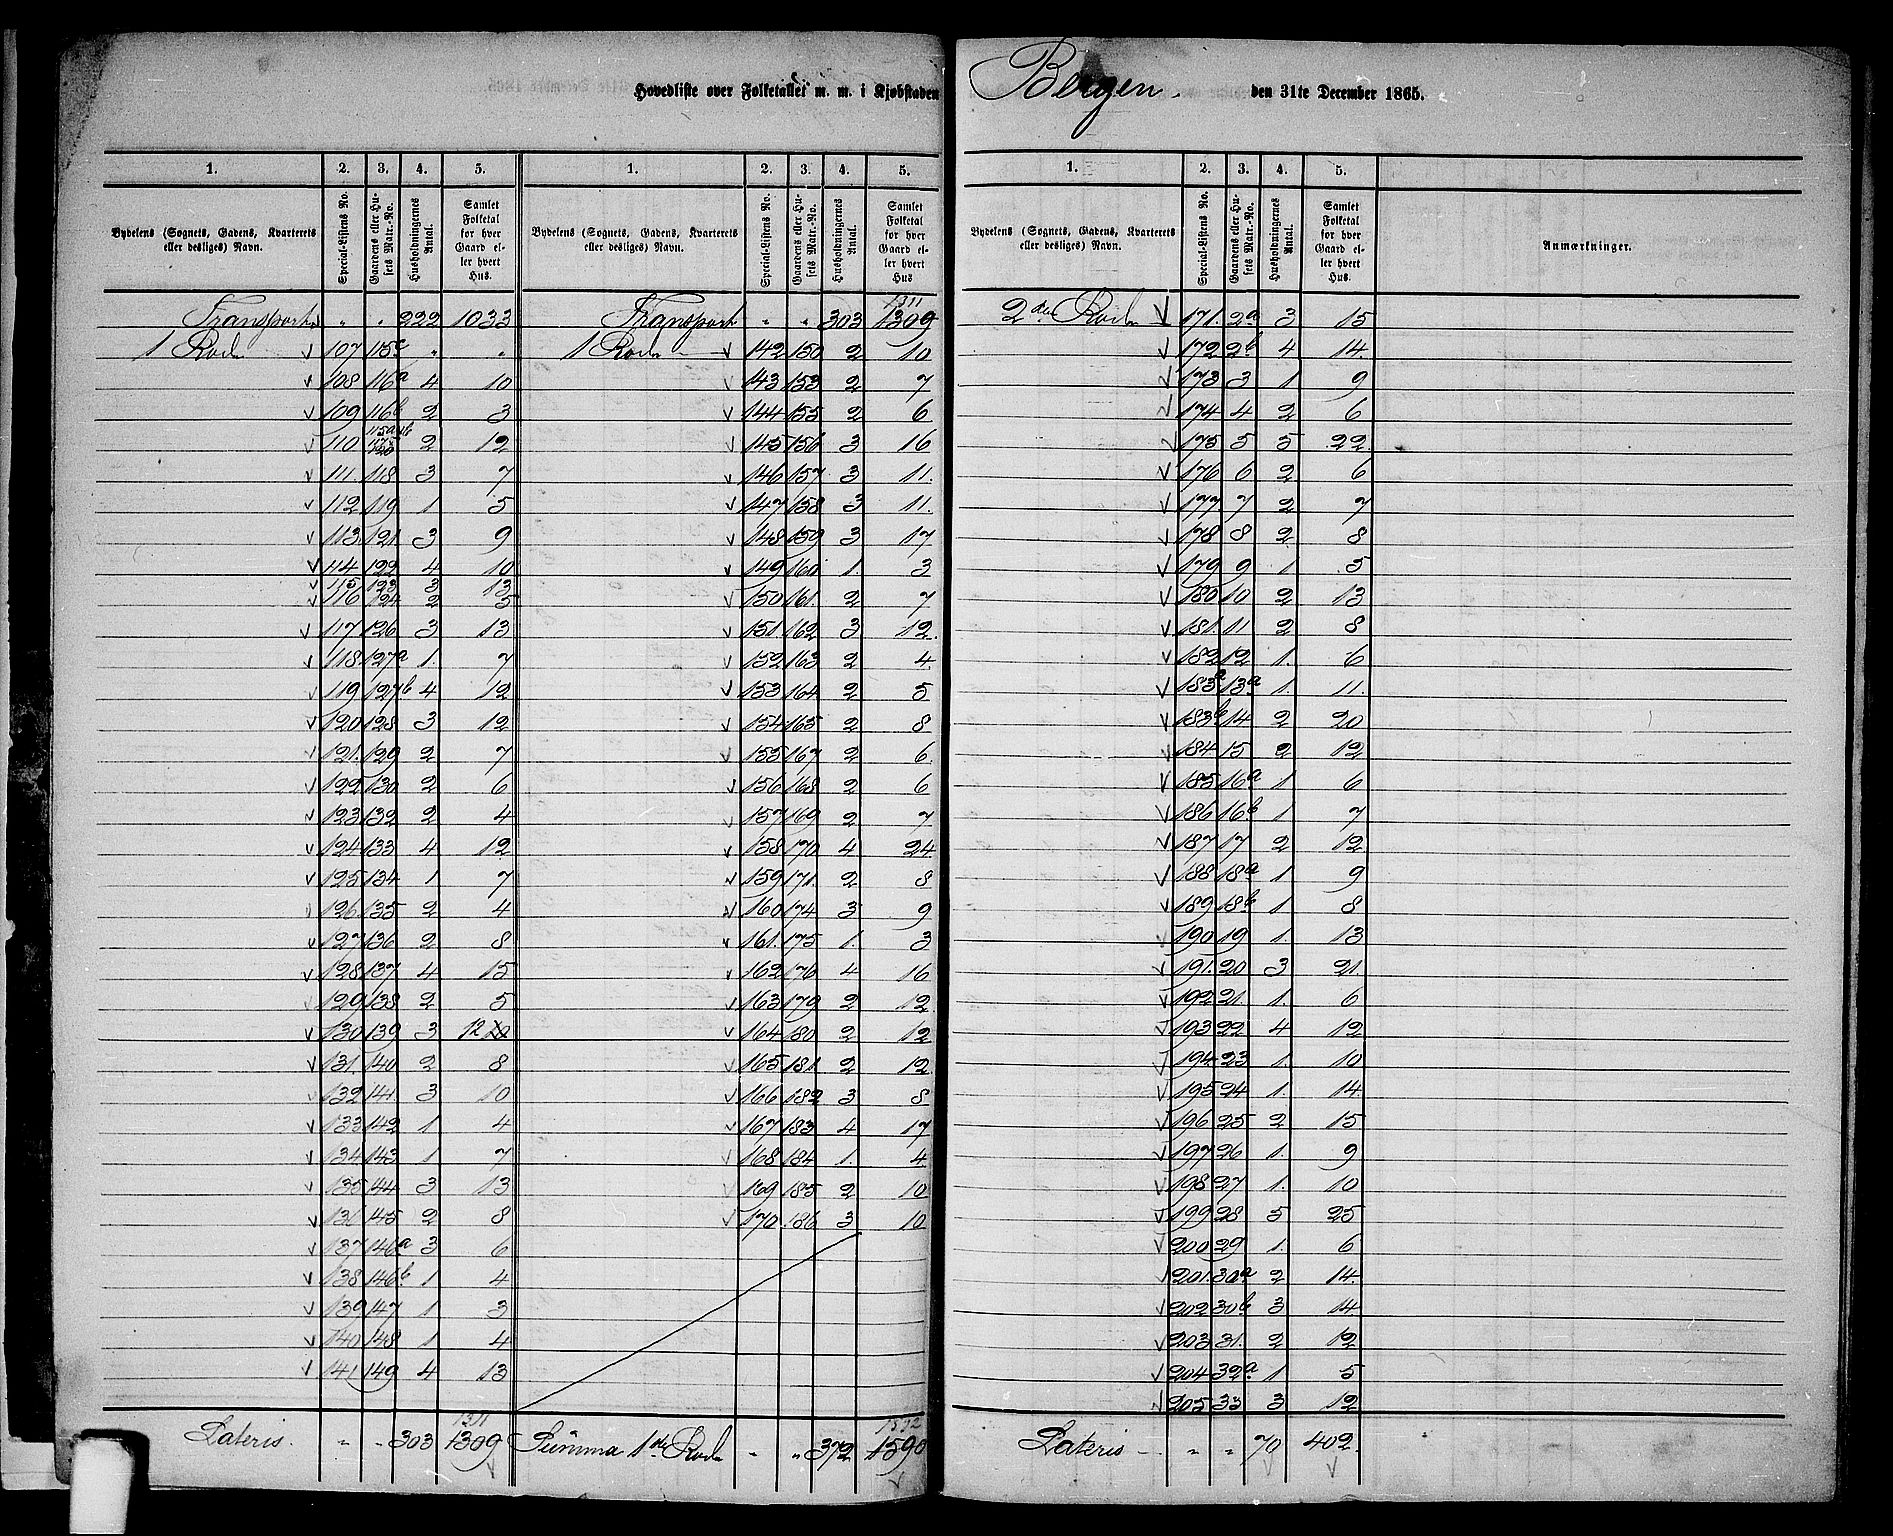 Hovedliste over Folketallet m. m. i Kjøbstaden Bergen. den 31te December 1865.
1. 2. 3. 4. 5. 1. 2. 3. 4. 5.
Bydelens (Sognets, Gadens, Kvarterets eller desliges) Navn. Special-Listens No. Gaardens eller Husets Matr.-No. Husholdningernes Antal. Samlet Folketal for hver Gaard eller hvert Hus. Bydelens (Sognets, Gadens, Kvarterets eller desliges) Navn. Special-Listens No. Gaardens eller Husets Matr.-No. Husholdningernes Antal. Samlet Folketal for hver Gaard eller hvert Hus
1311
Transport " " 222 1033 Transport " " 303 1309
1 Rode V 107 115c " " 1 Rode V 142 150 2 10
V 108 116a 4 10 V 143 153 2 7
V 109 116b 2 3 V 144 155 2 6
V 110 2 12 V 145 156 3 16
V 111. 118 3 7 V 146 157 3 11.
V 112 119 1 5 V 147 158 3 11.
V 113 121. 3 9 V 148 159 3 17
V 114 122 4 10 V 149 160 1. 3
V 115 123 3 13
V 116 124 2 5 V 150 161. 2 7
V 117 126 3 13 V 151. 162 3 12.
V 118. 127a 1. 7 V 152 163 2 4.
V 119 127b 4 12 V 153 164 2 5
V 120 128 3 12 V 154 165 2 8
V 121. 129 2 7 V 155 167 2 6.
V 122 130 2 6 V 156 168 2 6
V 123 132 2 4 V 157 169 2 7
V 124 133 4 12 V 158 170 4 24
V 125 134 1 7 V 159 171. 2 8
V 126 135 2 4 V 160 174 3 9
V 127 136 2 8 V 161. 175 1. 3
V 128 137 4 15 V 162 176 4 16
V 129 138 2 5 V 163 179 2 12
V 130 139 3 12 V 164 180 2 12
V 131. 140 2 8 V 165 181. 2 12
V 132 141. 3 10 V 166 182 3 8
V 133 142 1 4 V 167 183 4 17
V 134 143 1 7 V 168 184 1. 4
V 135 144 3 13 V 169 185 2 10
V 136 145 2 8 V 170 186 3 10
V 137 146a 3 6
V 138 146b 1 4
V 139 147 1 3
V 140 148 1 4
V 141 149 4 13
1311 1592
Lateris. " " 303 1309 Summa 1ste Rode " " 372 1590
V V
1. 2. 3. 4. 5.
Bydelens (Sognets, Gadens, Kvarterets eller desliges) Navn. Special-Listens No. Gaardens eller Husets Matr.-No. Husholdningernes Antal. Samlet Folketal for hver Gaard eller hvert Hus. Anmærkninger.
2den Rode V 171. 2a 3 15
V 172 2b 4 14.
V 173 3 1 9
V 174 4 2 6
V 175 5 5 22
V 176 6 2 6
V 177 7 2 7
V 178 8 2 8
V 179 9 1 5
V 180 10 2 13
V 181. 11 2 8
V 182 12 1. 6
V 183a 13a 1. 11.
V 183b 14 2 20
V 184 15 2 12
V 185 16a 1 6
V 186 16b 1 7
V 187 17 2 12
V 188 18a 1 9
V 189 18b 1 8
V 190 19 1. 13
V 191. 20 3 21.
V 192 21. 1. 6
V 193 22 4 12
V 194 23 1. 10
V 195 24 1. 14.
V 196 25 2 15
V 197 26 1. 9
V 198 27 1. 10
V 199 28 5 25
V 200 29 1. 6
V 201. 30a 2 14.
V 202 30b 3 14
V 203 31. 2 12
V 204 32a 1 5
V 205 33 3 12
Lateris " " 70 402
V V